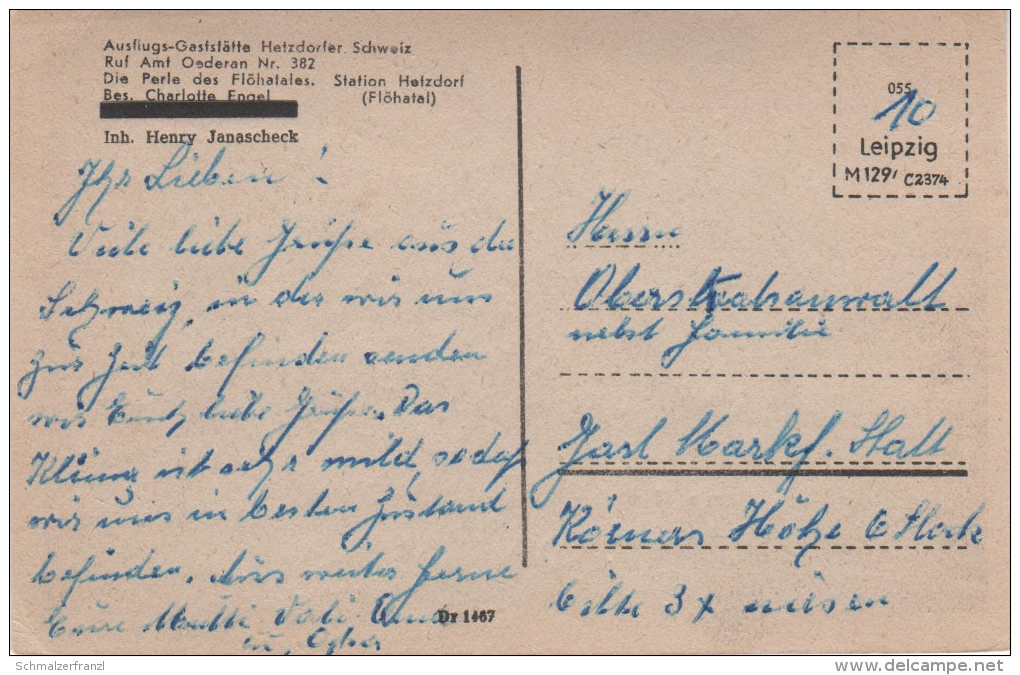 Ausflugs-Gaststätte Hetzdorfer Schweiz
Ruf Amt Oederan Nr. 382
Die Perle des Flöhatales. Station Hetzdorf
Bes. Charlotte Engel (Flöhatal)
Inh. Henry Janascheck
Ihr Lieben!
Viele liebe Grüße aus der
Schweiz, in der wir uns
zur Zeit befinden senden
wir Euch liebe Grüße. Das
Klima ist sehr mild, sodaß
wir uns in besten Zustand
befinden. Aus weiter Ferne
Eure Mutti Vati Oma
u.
Dr 1467
055
10
Leipzig
M 129, C2374
Herrn
Oberstaatsanwalt
nebst Familie
Markf. Statt
Körners Höhe 6 Stock
bitte 3x niesen
Schmalzerfranzl
www.delcampe.net